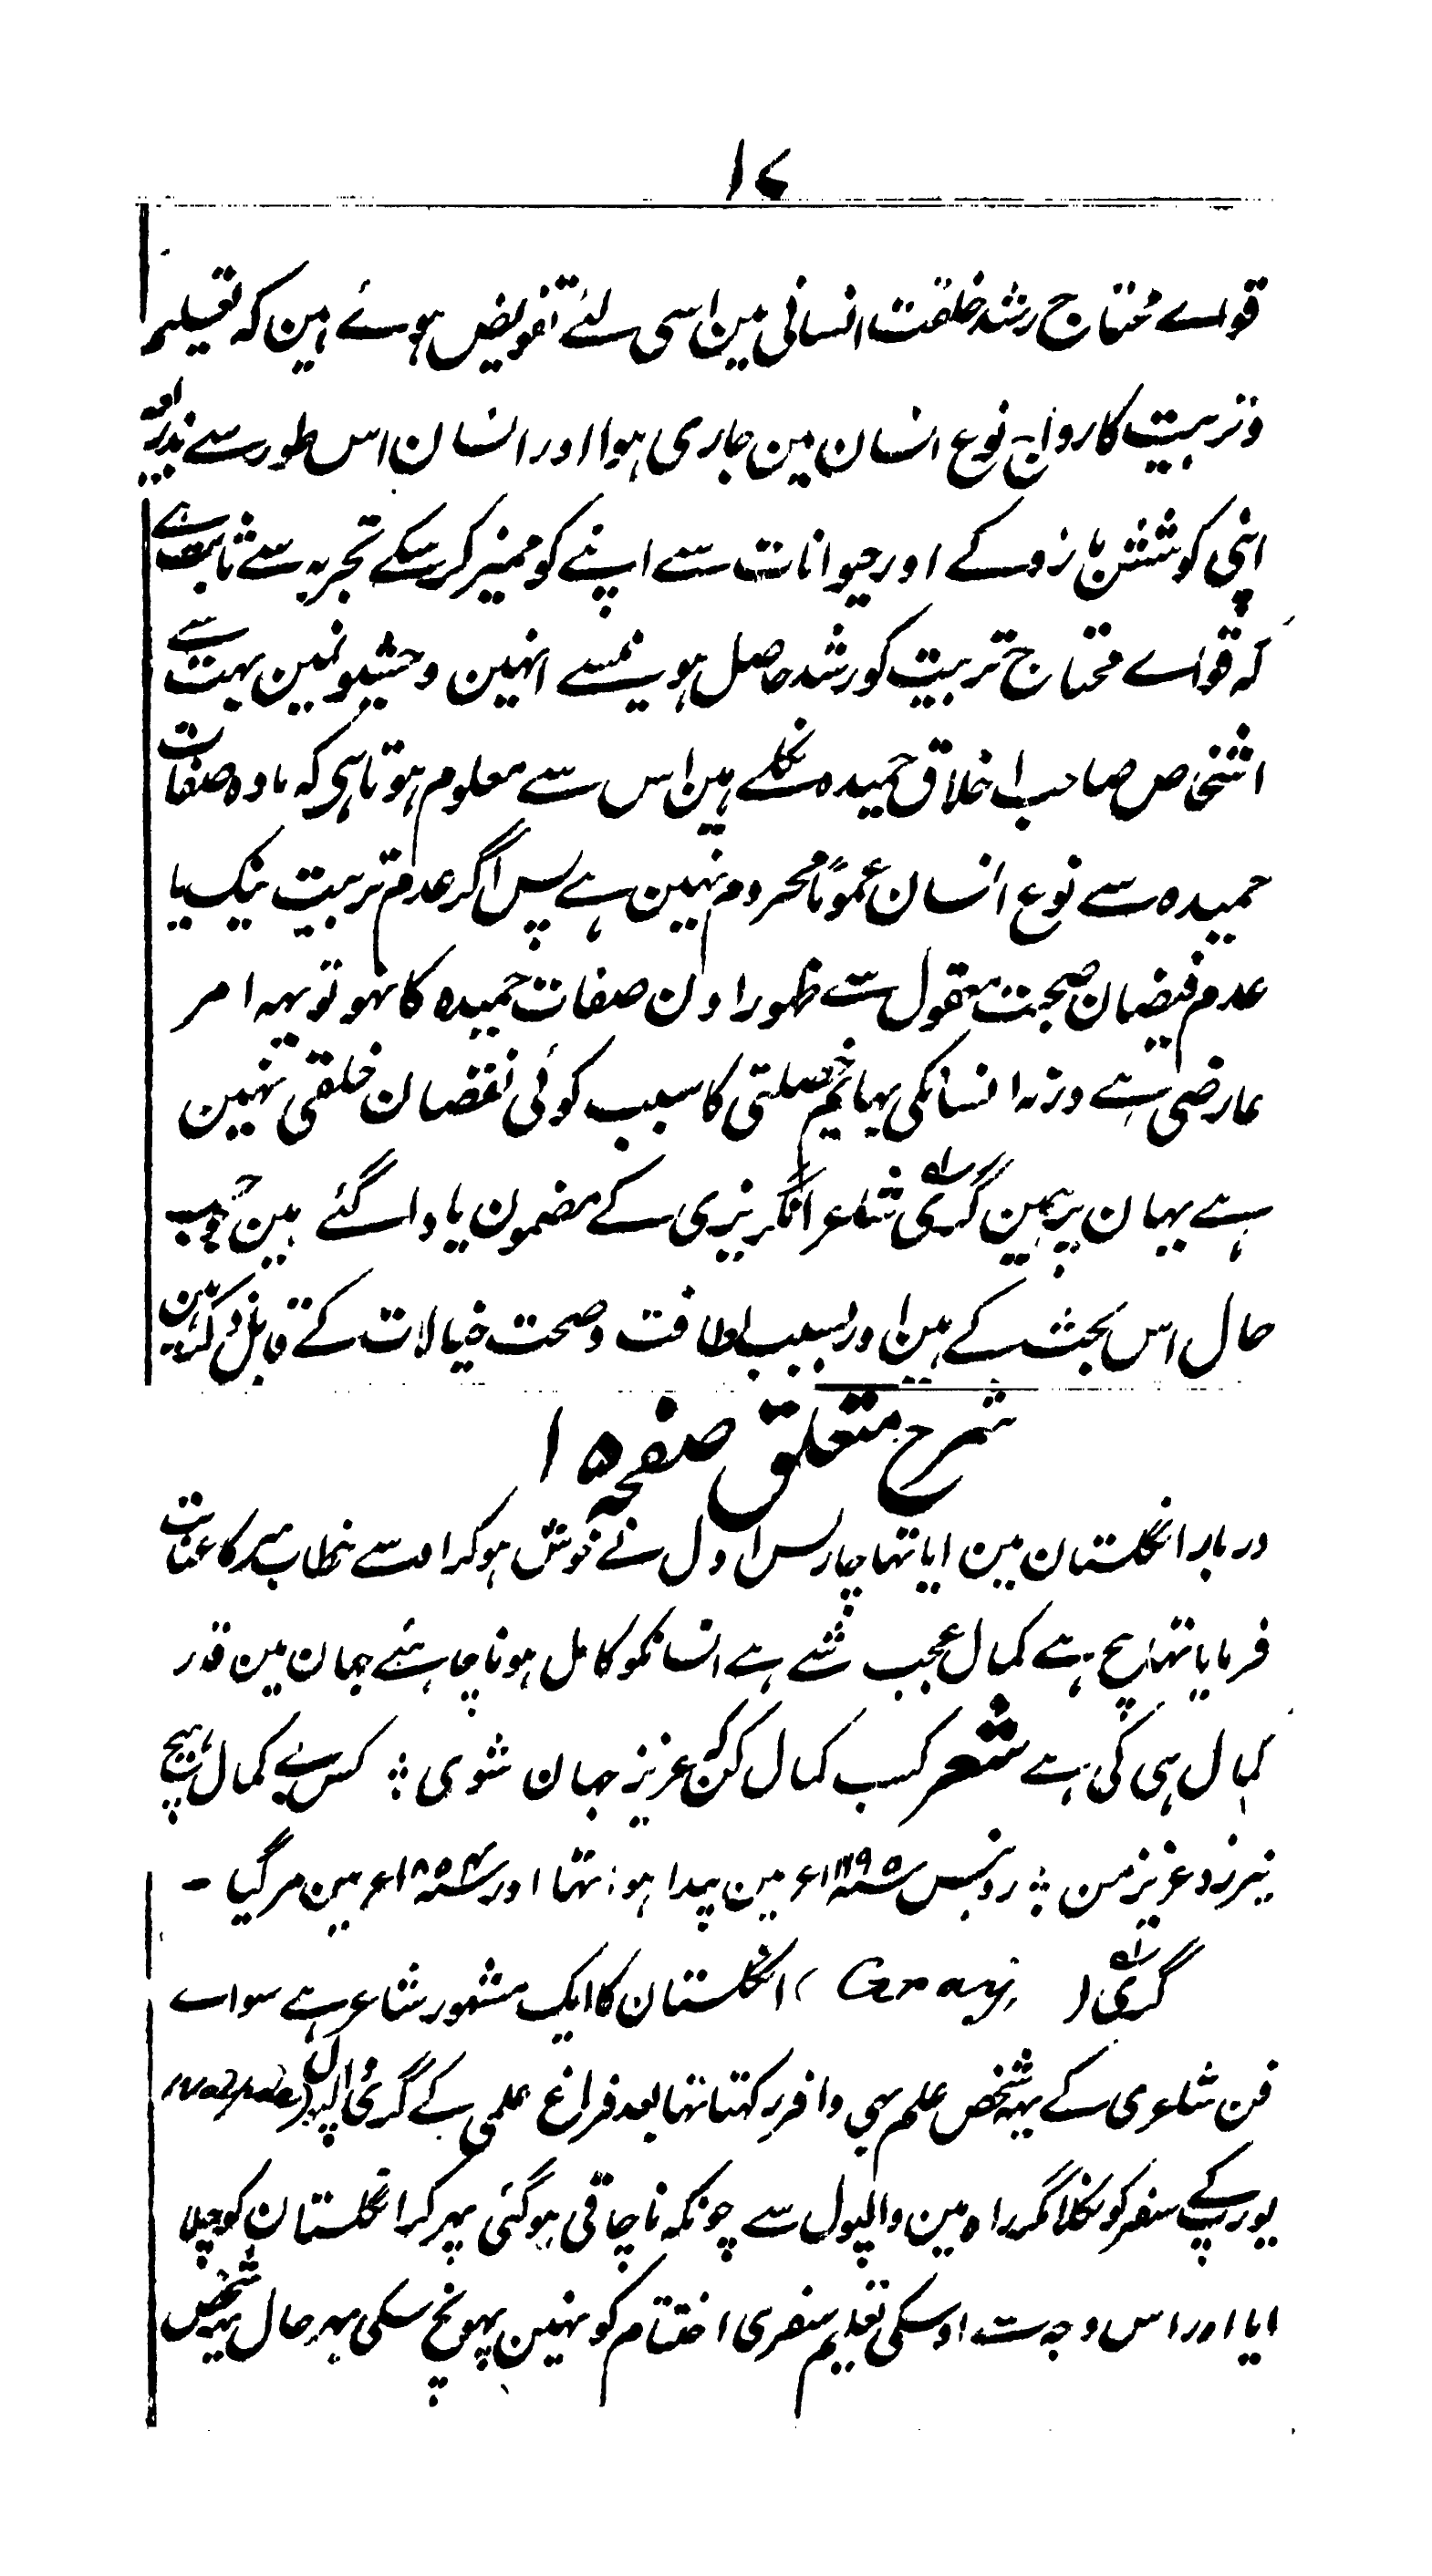 ۱۷
قواے محتاج رشد خلقت انسانی مین اسی لئے تفویض ہوئے ہین کہ تعلیم
وتربیت کا رواج نوع انسان مین جاری ہوا اور انسان اس طور سے بذریعہ
اپنی کوشش بازو کے اور حیوانات سے اپنے کو ممیز کرسکے تجربہ سے ثابت ہے
کہ قواے محتاج تربیت کو رشد حاصل ہونیسے انہین وحشیونمین بہت سے
اشخاص صاحب اخلاق حمیدہ نکلے ہین اس سے معلوم ہوتا ہی کہ مادہ صفات
حمیدہ سے نوع انسان عموماً محروم نہین ہے پس اگر عدم تربیت نیک یا
عدم فیضان صحبت معقول سے ظہور اون صفات حمیدہ کا نہو تو یہہ امر
عارضی ہے ورنہ انسانکی بہائم خصلتی کا سبب کوئی نقصان خلقی نہین
ہے یہان پر ہمین گری شاعر انگریزی کے مضمون یاد اگئے ہین جو حسب
حال اس بحث کے ہین اور بسبب لطافت وصحت خیالات کے قابل ذکر ہین
شرح متعلق صفحہ ۱۵
دربار انگلستان مین ایا تہا چارلس اول نے خوش ہوکر اسے خطاب سر کا عنایت
فرمایا تہا سچ ہے کمال عجب شے ہے انسانکو کامل ہونا چاہئے جہان مین قدر
کمال ہی کی ہے شعر کسب کمال کن کہ عزیز جہان شوی ؛ کس بے کمال ہیچ
نیرزد عزیز من ؛ روبنس ۱۷۹۵ء مین پیدا ہوا تہا اور ۱۸۵۴ء مین مرگیا -
گری ( Gray ) انگلستان کا ایک مشہور شاعر ہے سواے
فن شاعری کے یہہ شخص علم بہی وافر رکہتا تہا بعد فراغ علمی کے گری والپول (Walpole
یورپ کے سفر کو نکلا مگر راہ مین والپول سے چونکہ ناچاقی ہوگئی پہر کر انگلستان کو چلا
ایا اور اس وجہ سے اوسکی تعلیم سفری اختتام کو نہین پہونچ سکی بہر حال یہہ شخص